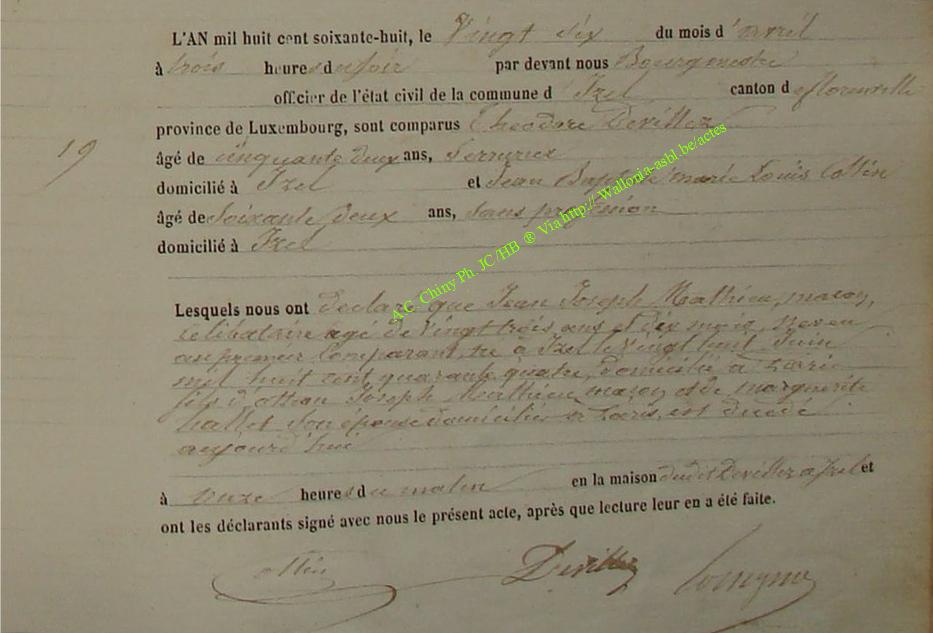 L'AN mil huit cent soixante-huit, le Vingt six du mois d'avril
à trois heures du soir par devant nous Bourgmestre
officier de l'état civil de la commune d'Izel canton de florenville
province de Luxembourg, sont comparus Theodore Devillez
19
âgé de cinquante deux ans, Serrurier
domicilié à Izel et Jean Baptiste marie Louis Collin
âgé de Soixante deux ans, sans profession
domicilié à Izel
A.C. Chiny Ph. JC /HB ® Via http://Wallonia-asbl.be/actes
Lesquels nous ont declaré que Jean Joseph Mathieu, macon,
celibataire agé de Vingt trois ans et dix mois, Neveu
au premier Comparant, né à Izel le Vingt huit Juin
mil huit cent quarante quatre, domicilié à Paris
fils d' Joseph Mathieu macon et de marguerite
hallet son épouse domiciliés à Paris, est decedé
aujourd'hui
à onze heures du matin en la maison dudit Devillez à Izel et
ont les déclarants signé avec nous le présent acte, après que lecture leur en a été faite.
Devillez